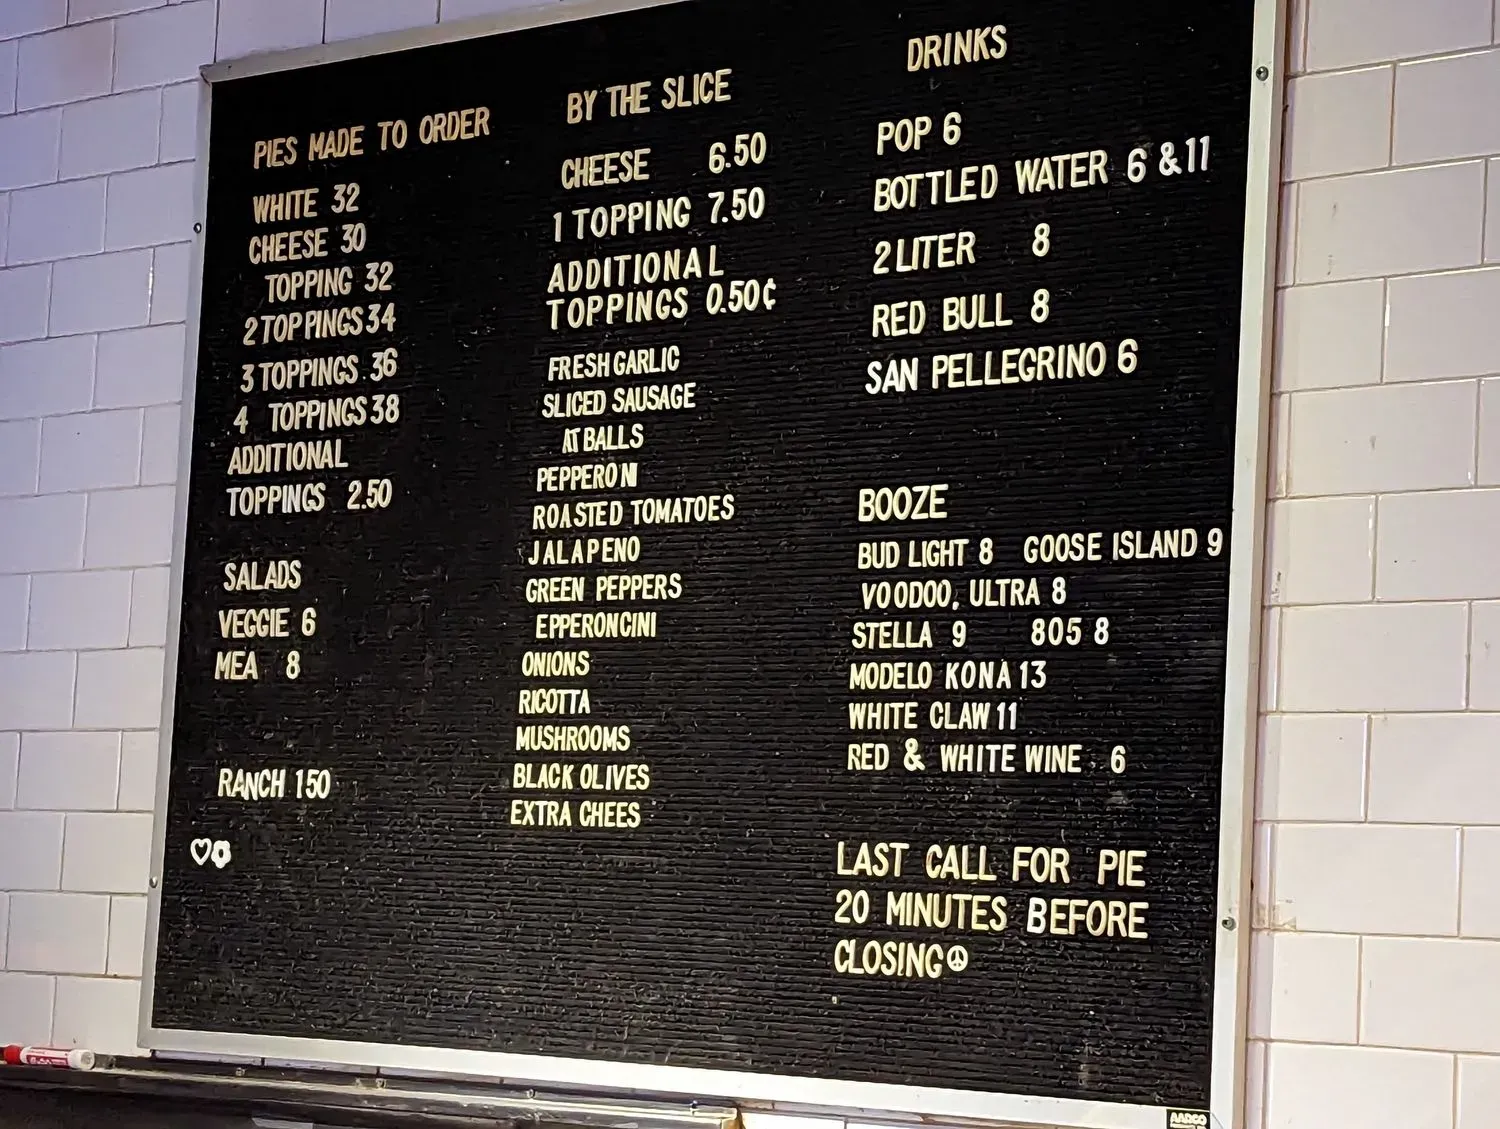 PIES MADE TO ORDER
WHITE 32
CHEESE 30
TOPPING 32
2 TOPPINGS 34
3 TOPPINGS 36
4 TOPPINGS 38
ADDITIONAL
TOPPINGS 2.50
SALADS
VEGGIE 6
MEA 8
RANCH 150
BY THE SLICE
CHEESE 6.50
1 TOPPING 7.50
ADDITIONAL
TOPPINGS 0.50¢
FRESH GARLIC
SLICED SAUSAGE
AT BALLS
PEPPERONI
ROASTED TOMATOES
JALAPENO
GREEN PEPPERS
EPPERONCINI
ONIONS
RICOTTA
MUSHROOMS
BLACK OLIVES
EXTRA CHEES
DRINKS
POP 6
BOTTLED WATER 6 & 11
2 LITER 8
RED BULL 8
SAN PELLEGRINO 6
BOOZE
BUD LIGHT 8 GOOSE ISLAND 9
VOODOO, ULTRA 8
STELLA 9 805 8
MODELO KONA 13
WHITE CLAW 11
RED & WHITE WINE 6
LAST CALL FOR PIE
20 MINUTES BEFORE
CLOSING
AARCO